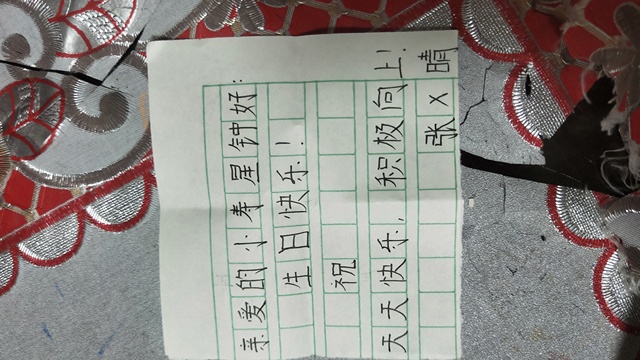 亲爱的小寿星钟好:
生日快乐!
祝
天天快乐,积极向上!
张x晴